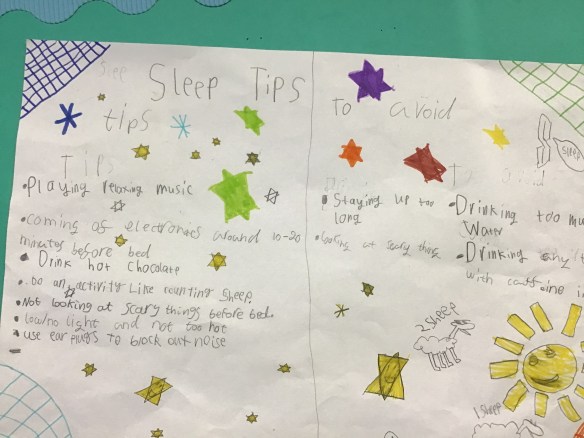 Sleep Tips
tips
To avoid
Tips
•Playing relaxing music
•coming of electronics around 10-20
minutes before bed
• Drink hot chocolate
•.Do an activity like counting sheep.
•Not looking at scary things before bed.
• low/no light and not too hot
• use ear plugs to block out noise
• Staying up too
long
•looking at scary things
•Drinking too mu
Water
•Drinking
with caffine in
2 sheep
1 sheep
sleep